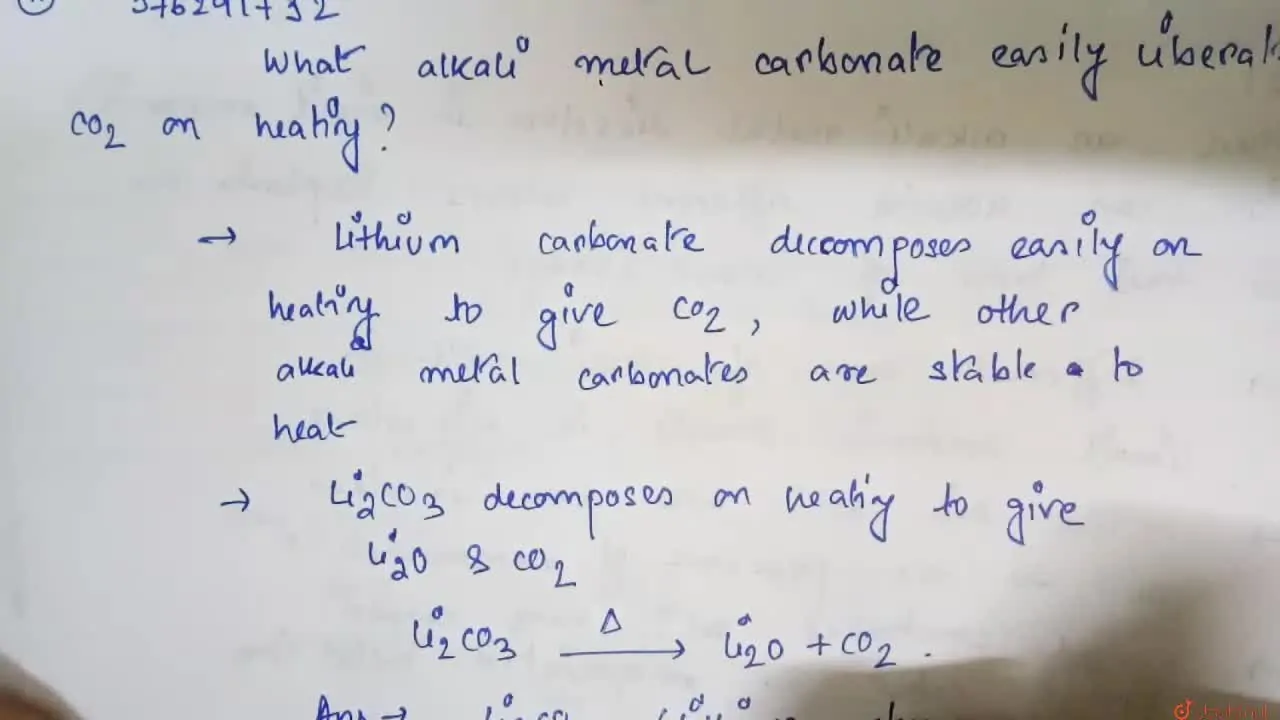 376241732
What alkali metal carbonate easily liberat
CO2 on heating?
→ Lithium carbonate decomposes easily on
heating to give CO2, while other
alkali metal carbonates are stable to
heat
→ Li2CO3 decomposes on heating to give
Li2O & CO2
Li2CO3 Δ→ Li2O + CO2.
Ans →